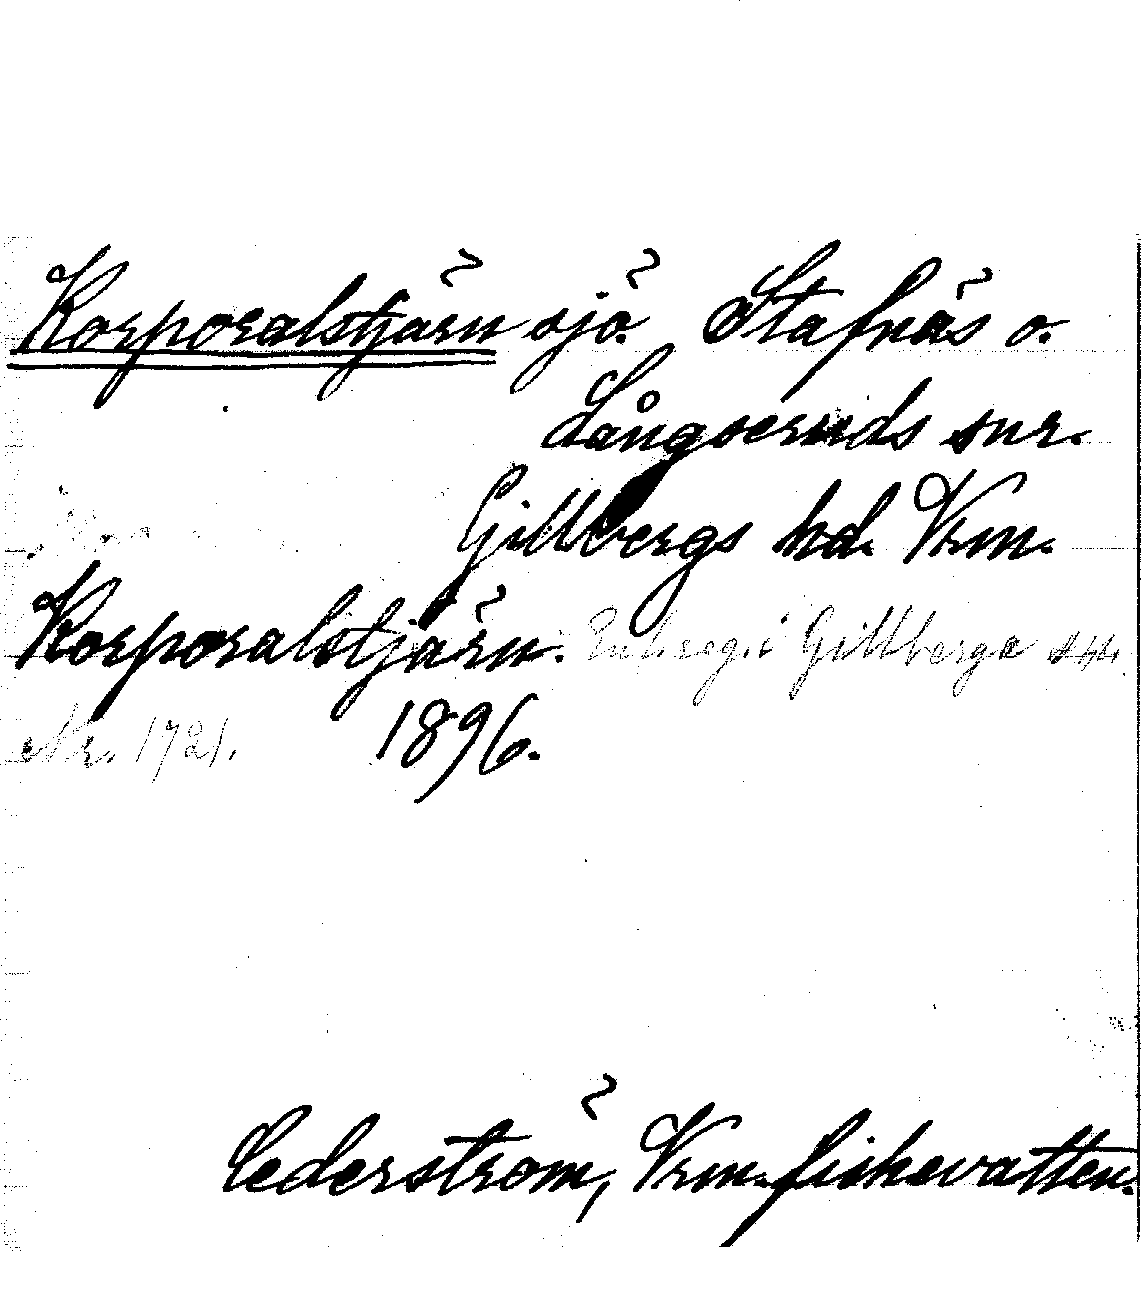 Korporalstjärn sjö Stafnäs o.
Långseruds snr.
Gillbergs hd. Vrm.
Korporalstjärn. Enl. reg. i Gillberga
Nr. 1721. 1896.
Cederström, Vrm. fiskevatten.